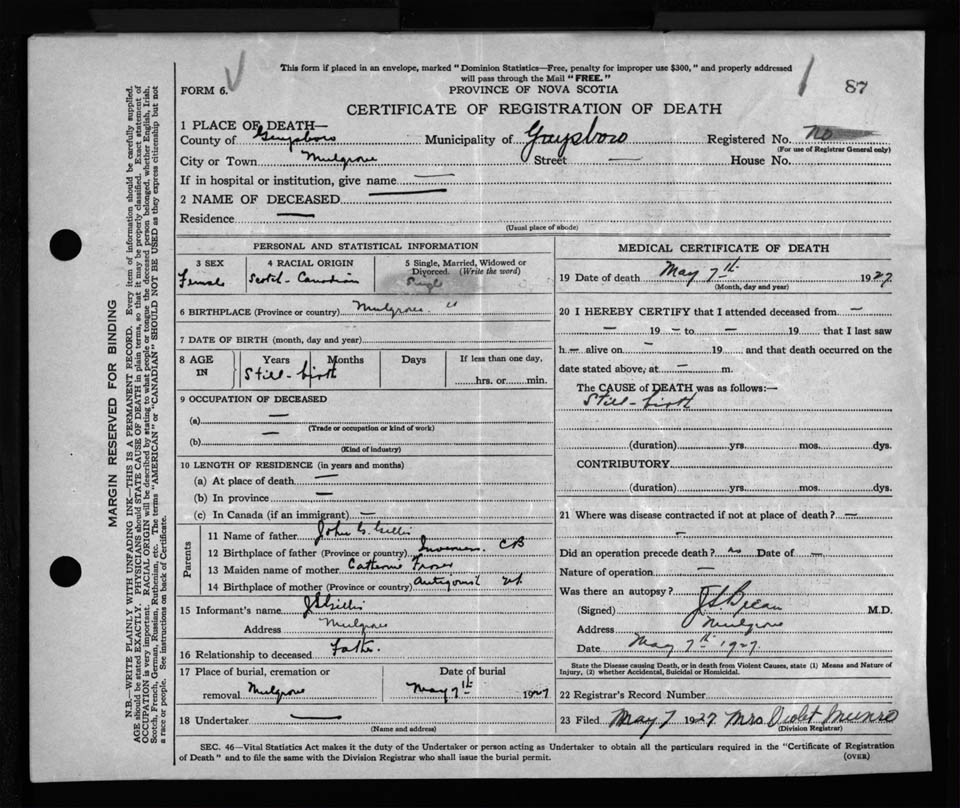 This form if placed in an envelope, marked "Dominion Statistics—Free, penalty for improper use $300," and properly addressed
will pass through the Mail "FREE."
FORM 6.
PROVINCE OF NOVA SCOTIA
87
CERTIFICATE OF REGISTRATION OF DEATH
1 PLACE OF DEATH—
County of Guysboro Municipality of Guysboro Registered No. no
(For use of Registrar General only)
City or Town Mulgrave Street — House No.
If in hospital or institution, give name —
2 NAME OF DECEASED —
Residence —
(Usual place of abode)
PERSONAL AND STATISTICAL INFORMATION
3 SEX
Female
4 RACIAL ORIGIN
Scotch-Canadian
5 Single, Married, Widowed or
Divorced. (Write the word)
Singl
6 BIRTHPLACE (Province or country) Mulgrave "
7 DATE OF BIRTH (month, day and year)
8 AGE IN Years Months Days If less than one day,
Still-birth hrs. or min.
9 OCCUPATION OF DECEASED
(a) —
(Trade or occupation or kind of work)
(b) —
(Kind of industry)
10 LENGTH OF RESIDENCE (in years and months)
(a) At place of death —
(b) In province —
(c) In Canada (if an immigrant) —
Parents
11 Name of father John G. Gillis
12 Birthplace of father (Province or country) Inverness CB
13 Maiden name of mother Catherine Fraser
14 Birthplace of mother (Province or country) Antigonish
15 Informant's name J Gillis
Address Mulgrave
16 Relationship to deceased Father.
17 Place of burial, cremation or Date of burial
removal Mulgrave May 7th 1927
18 Undertaker —
(Name and address)
MEDICAL CERTIFICATE OF DEATH
19 Date of death May 7th 1927.
(Month, day and year)
20 I HEREBY CERTIFY that I attended deceased from —
— 19 — to — 19 that I last saw
h — alive on — 19 and that death occurred on the
date stated above, at — m.
The CAUSE of DEATH was as follows:—
Still-birth
(duration) yrs. mos. dys.
CONTRIBUTORY
(duration) yrs. mos. dys.
21 Where was disease contracted if not at place of death? —
—
Did an operation precede death? no Date of —
Nature of operation —
Was there an autopsy?
(Signed) M.D.
Address Mulgrave
Date May 7th 1927.
State the Disease causing Death, or in death from Violent Causes, state (1) Means and Nature of
Injury, (2) whether Accidental, Suicidal or Homicidal.
22 Registrar's Record Number
23 Filed May 7 1927 Mrs. Violet Munro
(Division Registrar)
SEC. 46—Vital Statistics Act makes it the duty of the Undertaker or person acting as Undertaker to obtain all the particulars required in the "Certificate of Registration
of Death" and to file the same with the Division Registrar who shall issue the burial permit.
(OVER)
MARGIN RESERVED FOR BINDING
N.B.—WRITE PLAINLY WITH UNFADING INK—THIS IS A PERMANENT RECORD. Every item of information should be carefully supplied.
AGE should be stated EXACTLY. PHYSICIANS should STATE CAUSE OF DEATH in plain terms, so that it may be properly classified. Exact statement of
OCCUPATION is very important. RACIAL ORIGIN will be described by stating to what people or tongue the deceased person belonged, whether English, Irish,
Scotch, French, German, Russian, Ruthenian, etc. The terms "AMERICAN" or "CANADIAN" SHOULD NOT BE USED as they express citizenship but not
a race or people. See instructions on back of Certificate.